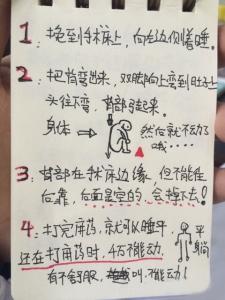 1、抱到手术床上，向左边侧着睡。
2、把背弯出来，双脚向上弯到肚子上
头往下弯，背部弓起来。
身体
然后就不动了
哦……
3、背部在手术床边缘，但不能往
后靠，后面是空的，会掉下去！
4、打完麻药，就可以睡平，
平
躺
还在打麻药时，千万不能动，
有不舒服，叫，不能动！